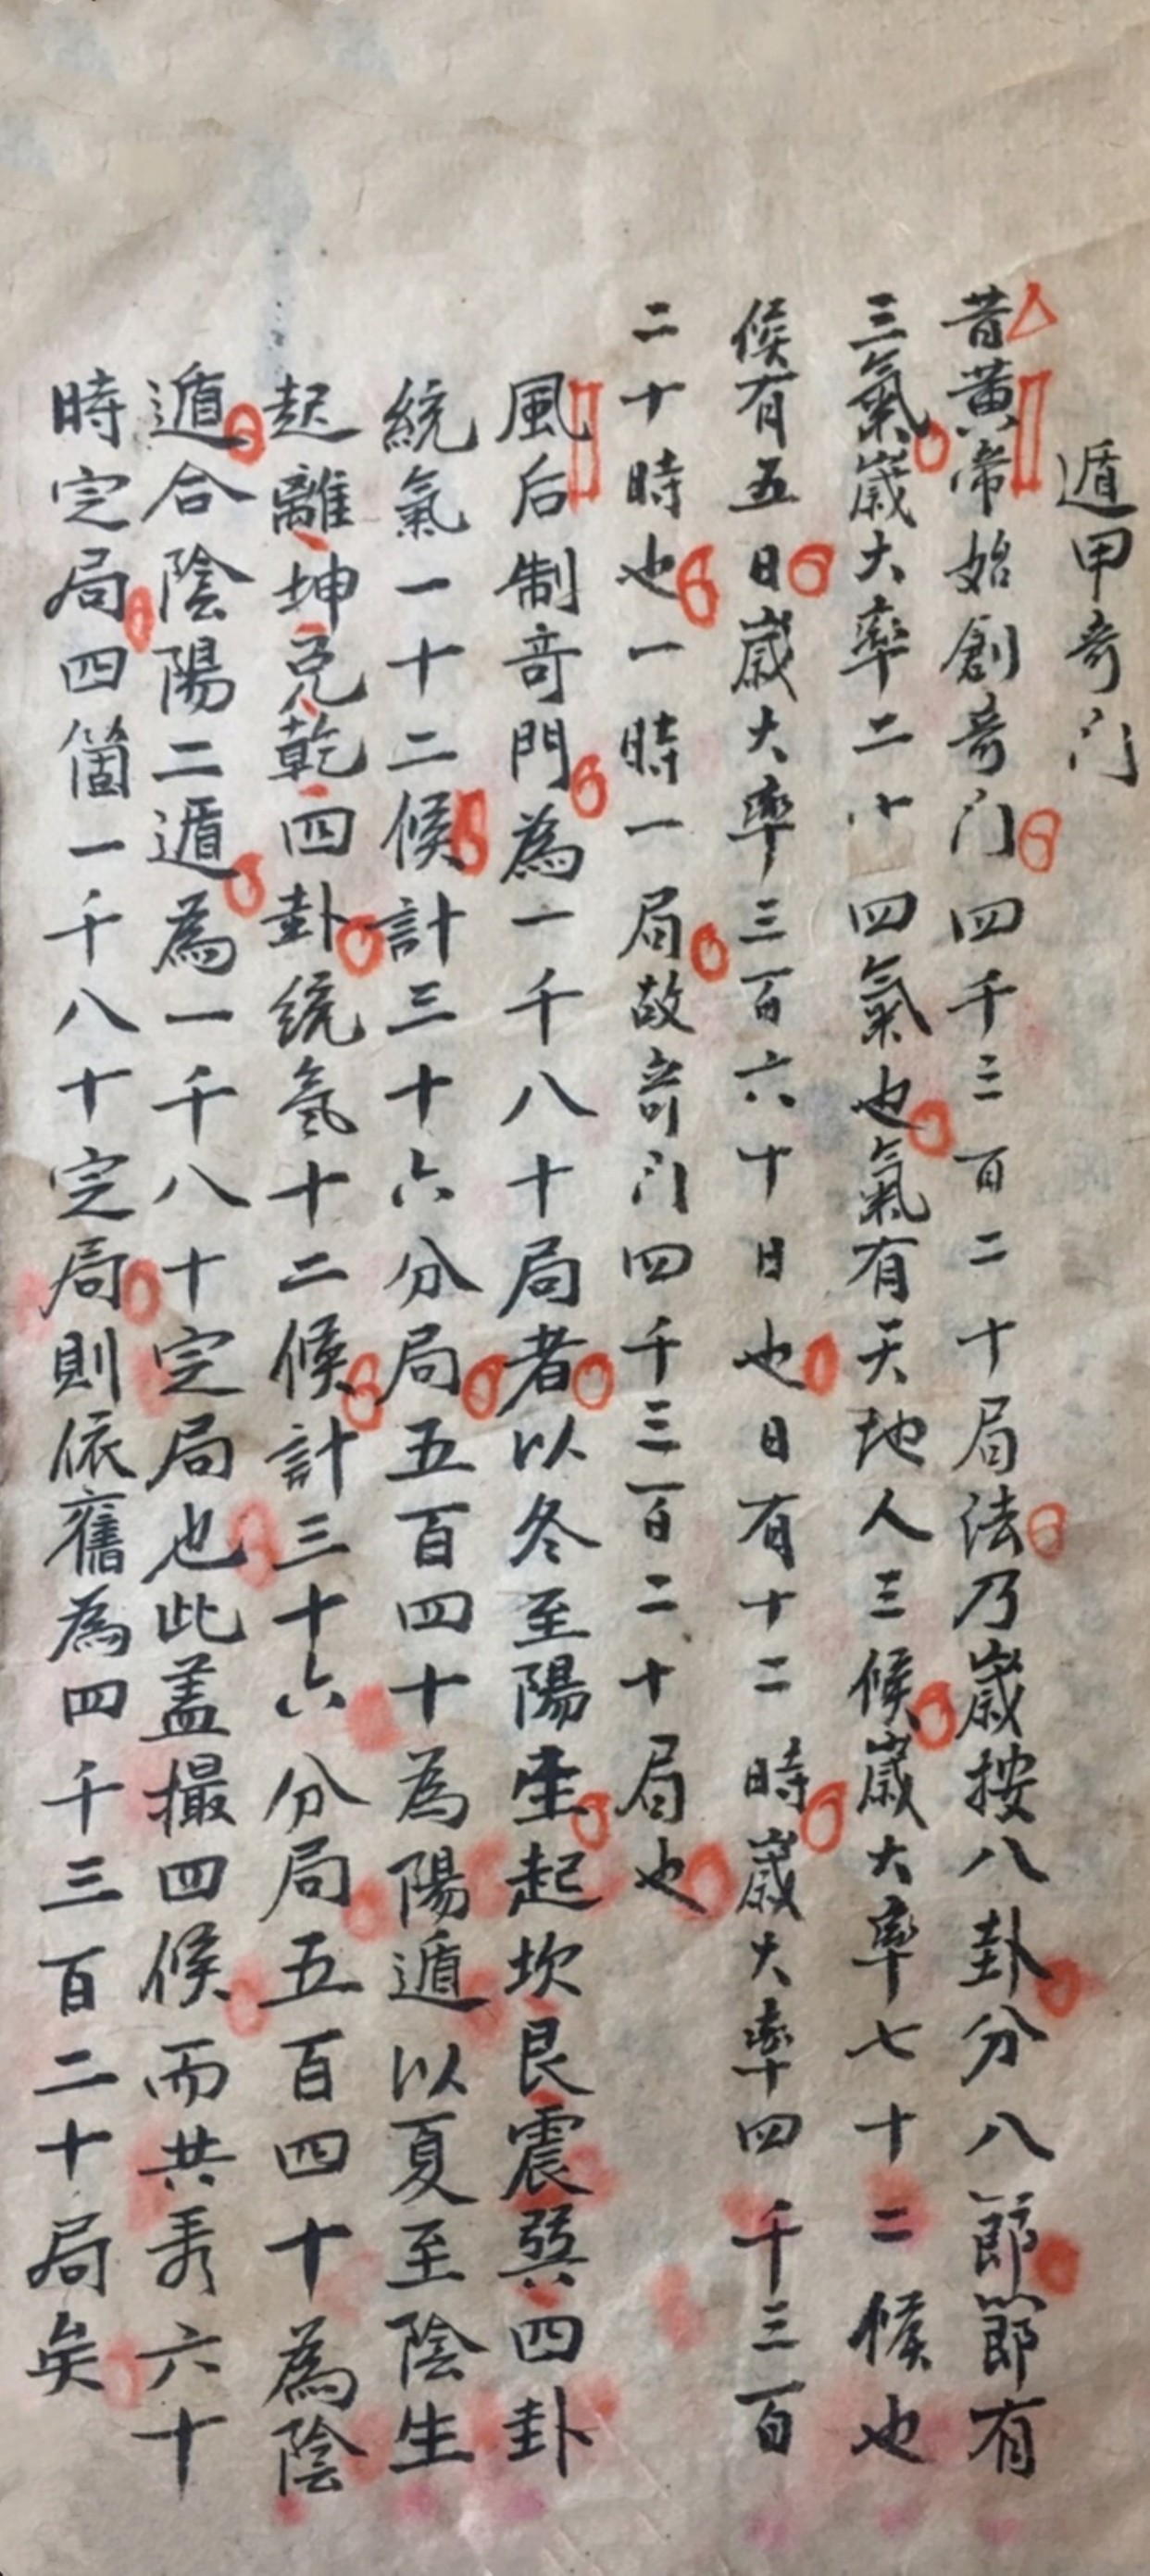 遁甲奇门
昔黄帝始創奇门四千三百二十局法乃歲按八卦分八節節有
三氣歲大率二十四氣也氣有天地人三候歲大率七十二候也
候有五日歲大率三百六十日也日有十二時歲大率四千三百
二十時也一時一局故奇门四千三百二十局也
風后制奇門為一千八十局者以冬至陽生起坎艮震巽四卦
統氣一十二候計三十六分局五百四十為陽遁以夏至陰生
起離坤兑乾四卦統氣十二候計三十六分局五百四十為陰
遁合陰陽二遁為一千八十定局也此蓋撮四候而共六十
時定局四箇一千八十定局則依舊為四千三百二十局矣